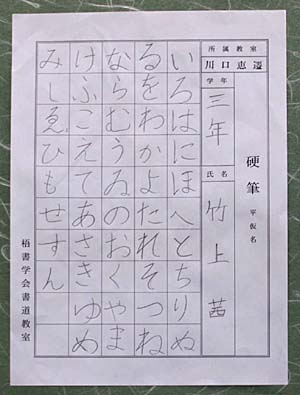 硬筆 平仮名
所属教室
川口恵
学年
三年
氏名
竹上 茜
いろはにほへとちりぬ
るをわかよたれそつね
ならむうゐのおくやま
けふこえてあさきゆめ
みしゑひもせすん
梧書学会書道教室